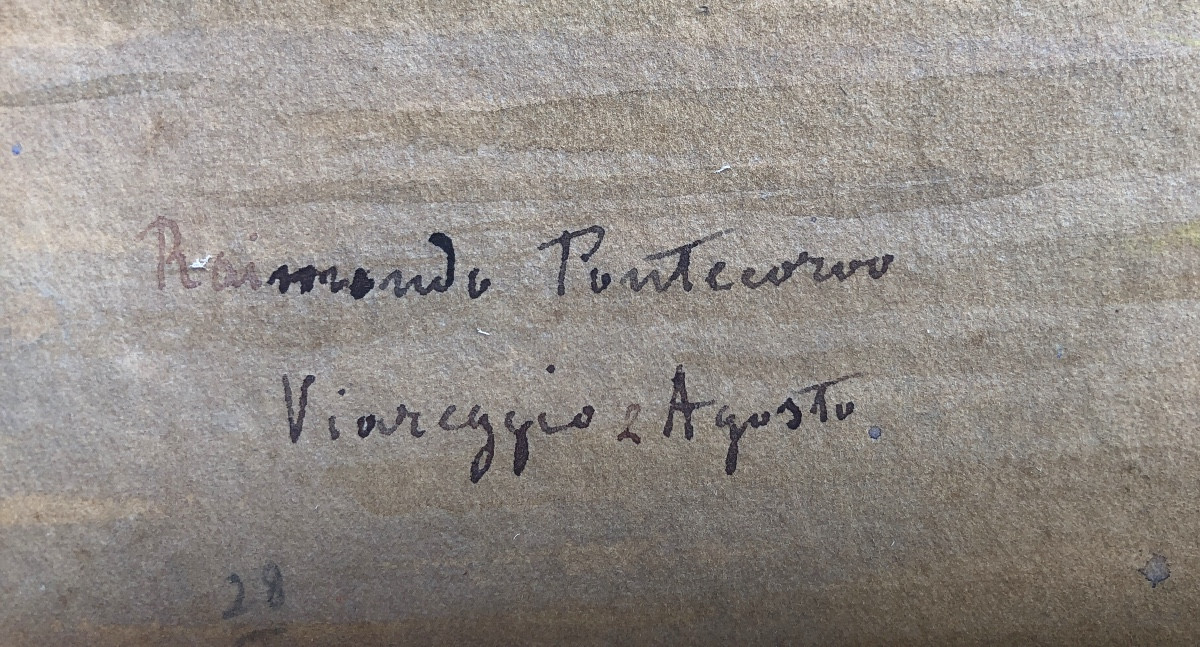 Raimondo Pontecorvo
Viareggio 2 Agosto.
28